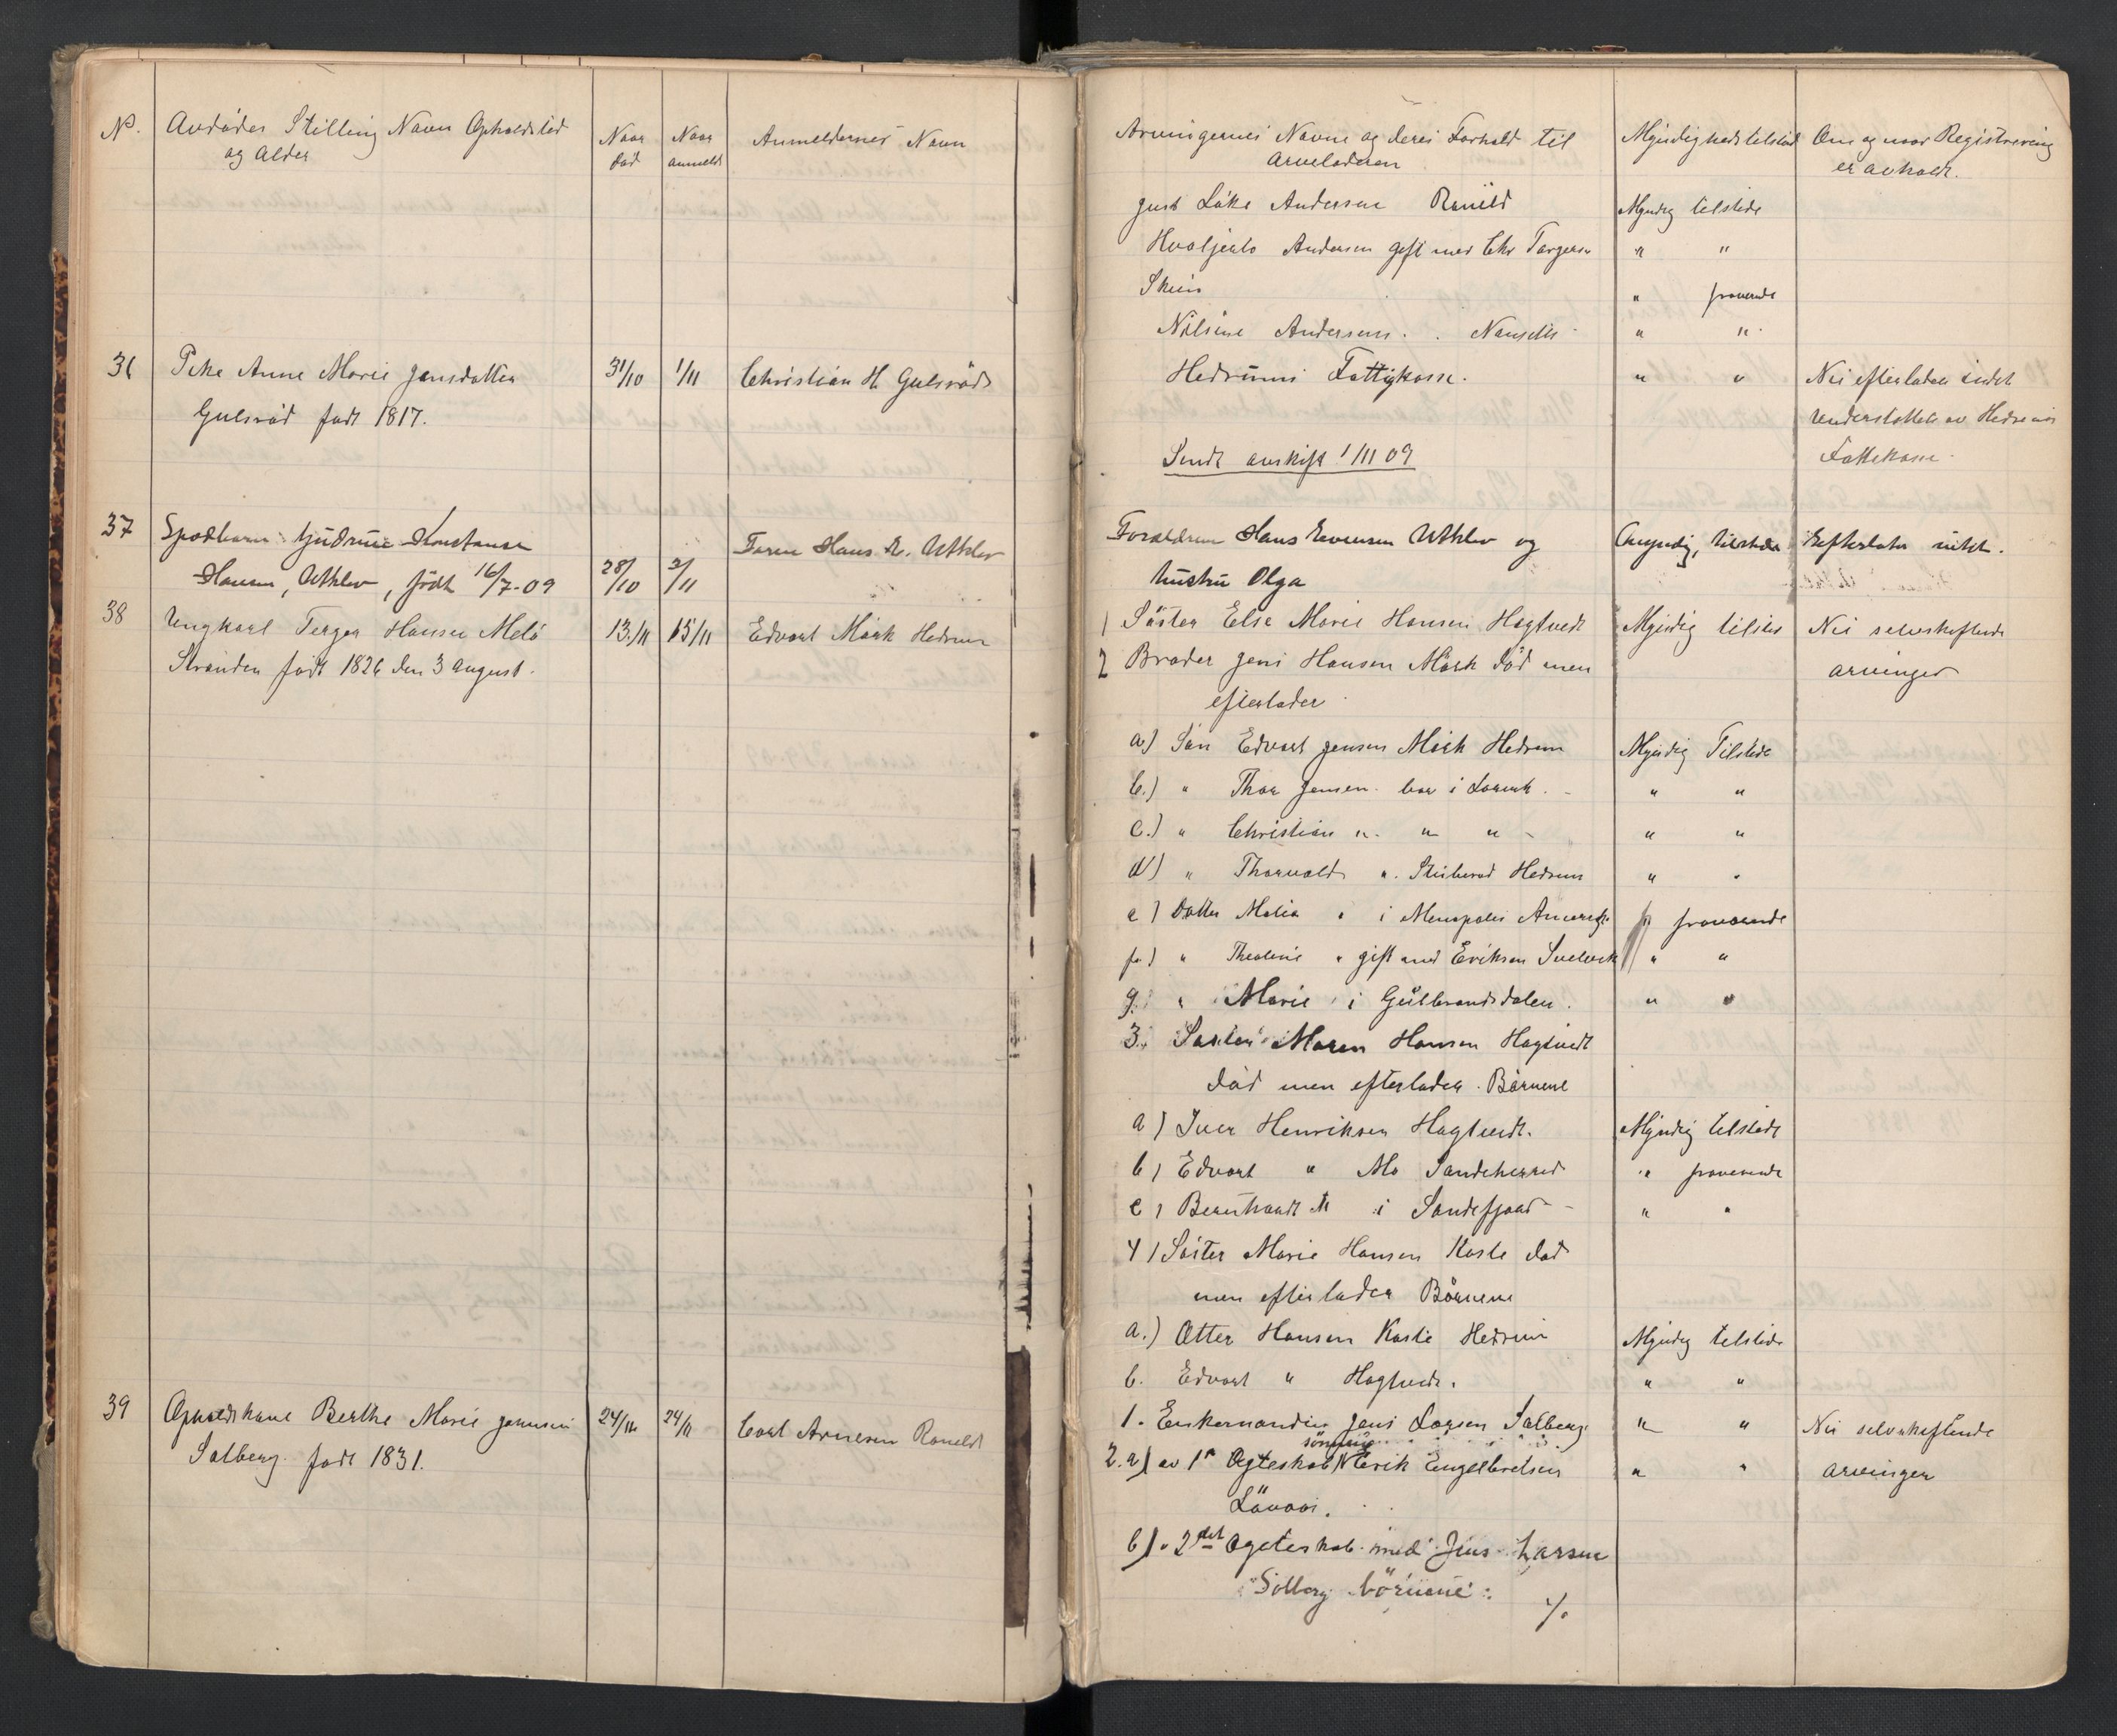 No. Avdödes Stilling Navn Opholdsted
og Alder
Naar
död
Naar
anmeldt
Anmeldernes Navn
36 Pike Anne Marie Jensdatter
Gulsröd födt 1817.
31/10 1/11 Christian H. Gulsröd
37 Spædbarn Gudrun Konstanse
Hansen, Uthlev, födt 16/7-09
28/10 2/11 Faren Hans E. Uthlev
38 Ungkarl Terger Hansen Melö
Stranden födt 1826 den 3 august.
13/11 15/11 Edvart Mörk Hedrum
39 Opholdskone Berthe Marie
Solberg. födt 1831.
24/11 24/11 Carl Arnesen
Arvingernes Navne og deres Forhold til
Arveladeren
Myndighedstilstand
Om og naar Registrering
er avholdt.
Andersen Myndig tilstede
Andersen gift med Chr Torgersen " "
Skien " fraverende
Andersens. " "
Hedrums Fattigkasse. " " Nei efterlader intet
understöttet av Hedrums
Fattikasse
Sendt avskift 1/11 09
Forældrene Hans Evensen Uthlev og Umyndig, tilstede Efterlater intet.
hustru Olga
1 Söster Else Marie Hansen Hagtvedt Myndig tilsted Nei selvskiftende
2 Broder Jens Hansen Mörk död men arvinger
efterlader
a) Sön Edvart Jensen Mörk Hedrum Myndig Tilstede
b.) " Thor Jensen bor i Larvik. " "
c.) " Christian " " " " "
d) " Thorvald " Hedrum " "
e) Datter " i fraverende
f.) " " gift med Eriksen Svelvik " "
g. " Marie i Gulbrandsdalen. " "
3. Söster Maren Hansen Hagtvedt
död men efterlader Börnene
a) Iver Henriksen Hagtvedt. Myndig tilstede
b) Edvart " Mo Sandeherred " fraverende
c) Bernhardt " i Sandefjord " "
4) Söster Marie Hansen Kaste död
men efterlader Börnene
a.) Otter Hansen Kaste Hedrum Myndig tilstede
b. Edvart " Hagtvedt. " "
1. Enkemanden Jens Larsen Solberg " " Nei selvskiftende
2.a) av 1ste Ægteskab sönnen Erik Engelbretsen " " arvinger
b) " 2det Ægteskab med Jens Larsen
Solberg börnene:
./.